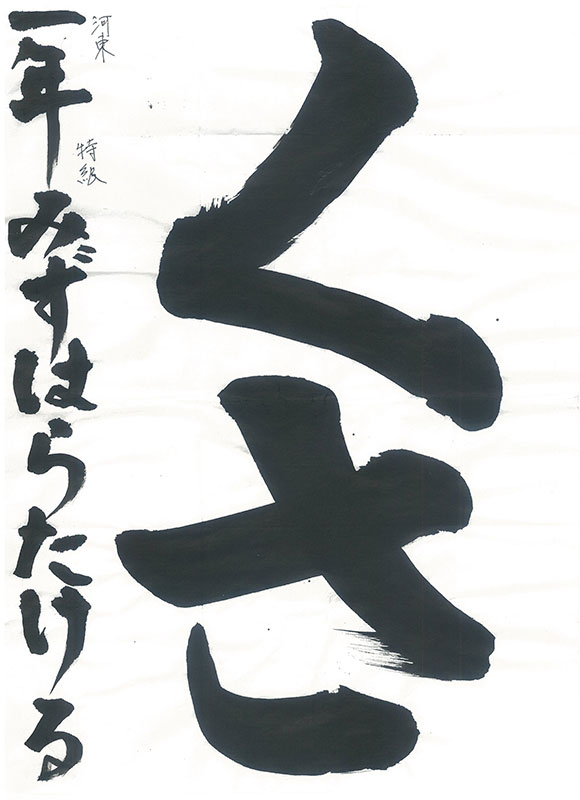 くさ
河東 特級
一年 みずはらたける